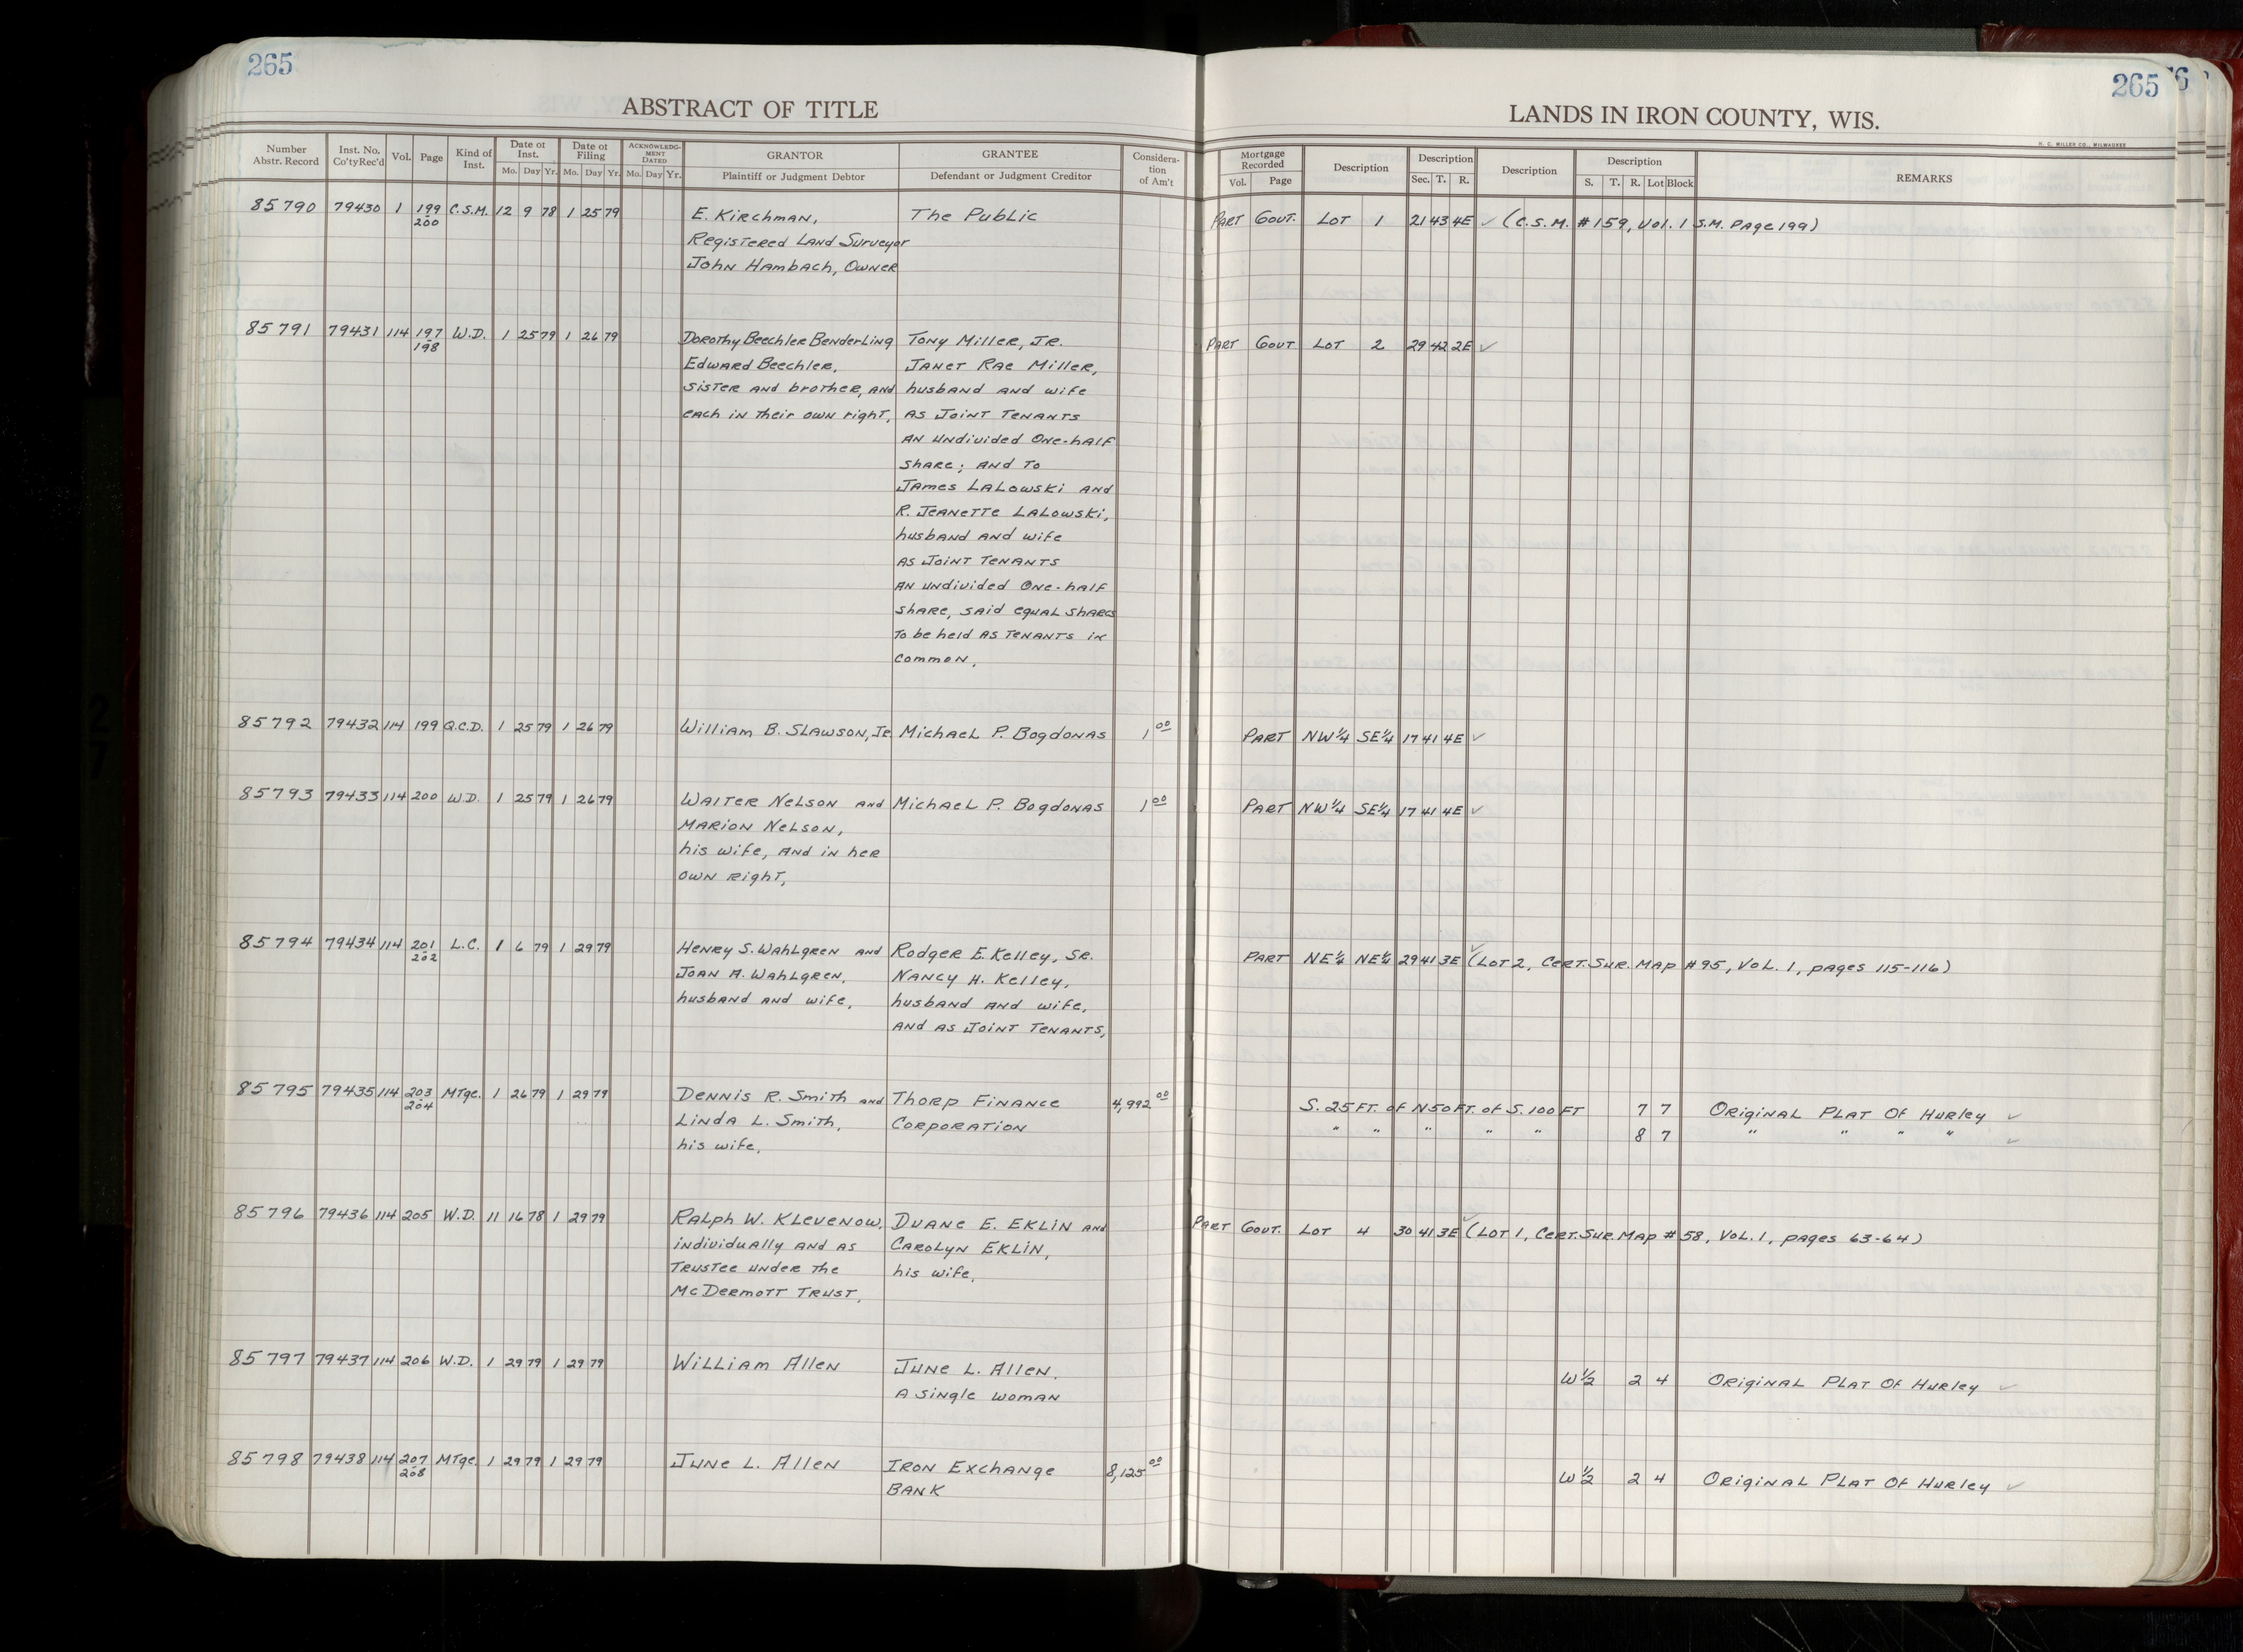 265
ABSTRACT OF TITLE
Number Abstr. Record Inst. No. Co'ty Rec'd Vol. Page Kind of Inst. Date of Inst. Mo. Day Yr. Date of Filing Mo. Day Yr. ACKNOWLEDG-MENT DATED Mo. Day Yr. GRANTOR Plaintiff or Judgment Debtor GRANTEE Defendant or Judgment Creditor Considera-tion of Am't
85790 79430 1 199 200 C.S.M. 12 9 78 1 25 79 E. Kirchman, The Public
Registered Land Surveyor
John Hambach, Owner
85791 79431 114 197 198 W.D. 1 25 79 1 26 79 Dorothy Beechler Benderling Tony Miller, Jr.
Edward Beechler, Janet Rae Miller,
sister and brother, and husband and wife
each in their own right, as Joint Tenants
an undivided One-half
share; and to
James LaLowski and
R. Jeanette LaLowski,
husband and wife
as Joint Tenants
an undivided One-half
share, said equal shares
to be held as tenants in
common.
85792 79432 114 199 Q.C.D. 1 25 79 1 26 79 William B. Slawson, Jr. Michael P. Bogdonas 1 00
85793 79433 114 200 W.D. 1 25 79 1 26 79 Walter Nelson and Michael P. Bogdonas 1 00
Marion Nelson,
his wife, and in her
own right,
85794 79434 114 201 202 L.C. 1 6 79 1 29 79 Henry S. Wahlgren and Rodger E. Kelley, Sr.
Joan A. Wahlgren, Nancy H. Kelley,
husband and wife, husband and wife,
and as Joint Tenants,
85795 79435 114 203 204 Mtge. 1 26 79 1 29 79 Dennis R. Smith and Thorp Finance 4,992 00
Linda L. Smith, Corporation
his wife,
85796 79436 114 205 W.D. 11 16 78 1 29 79 Ralph W. Klevenow, Duane E. Eklin and
individually and as Carolyn Eklin,
Trustee under the his wife,
McDermott Trust,
85797 79437 114 206 W.D. 1 29 79 1 29 79 William Allen June L. Allen,
a single woman
85798 79438 114 207 208 Mtge. 1 29 79 1 29 79 June L. Allen Iron Exchange 8,125 00
Bank
265
LANDS IN IRON COUNTY, WIS.
H. C. MILLER CO., MILWAUKEE
Mortgage Recorded Vol. Page Description Description Sec. T. R. Description Description S. T. R. Lot Block REMARKS
Part Govt. Lot 1 21 43 4E ✓ (C.S.M. #159, Vol. 1 S.M. Page 199)
Part Govt Lot 2 29 42 2E ✓
Part NW¼ SE¼ 17 41 4E ✓
Part NW¼ SE¼ 17 41 4E ✓
Part NE¼ NE¼ 29 41 3E ✓ (Lot 2, Cert. Sur. Map #95, Vol. 1, pages 115-116)
S. 25 FT. of N 50 FT. of S. 100 FT 7 7 Original Plat Of Hurley ✓
" " " " " 8 7 " " " " ✓
Part Govt. Lot 4 30 41 3E ✓ (Lot 1, Cert. Sur. Map #58, Vol. 1, pages 63-64)
W½ 2 4 Original Plat Of Hurley ✓
W½ 2 4 Original Plat Of Hurley ✓